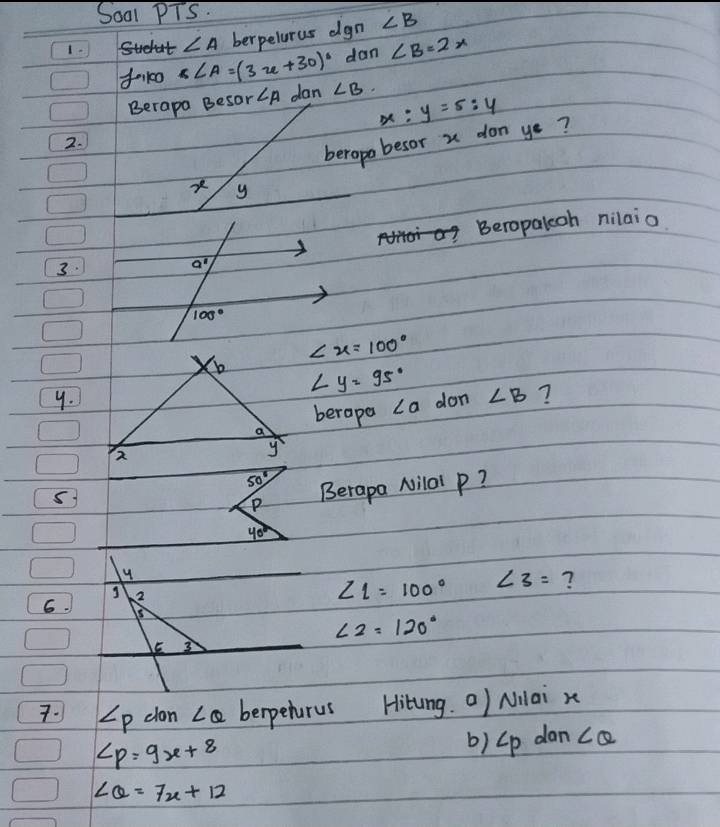 Soal PTS.
1. Sudut ∠A berpelurus dgn ∠B
Jika ∠A = (3x+30)° dan ∠B = 2x
Berapa Besar ∠A dan ∠B.
2. x : y = 5 : 4
berapa besar x dan y ?
x y
3. Nilai a? Berapakah nilai a
a°
100°
4. ∠x = 100°
∠y = 95°
berapa ∠a dan ∠B ?
b
a
x y
5. Berapa Nilai p ?
50°
p
40°
6. ∠1 = 100° ∠3 = ?
∠2 = 120°
4
1 2
5
6 3
7. ∠p dan ∠Q berpelurus Hitung. a) Nilai x
∠p = 9x + 8 b) ∠p dan ∠Q
∠Q = 7x + 12